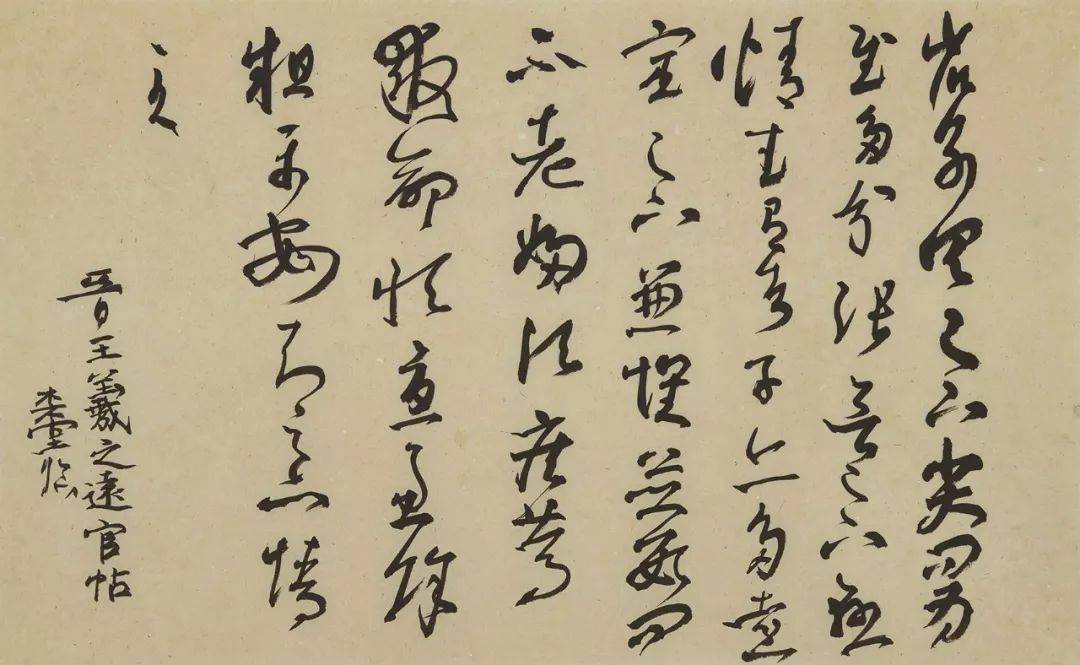 省別具足下小大問為
慰多分張念足下懸
情武昌諸子亦多遠
宦足下兼懷並數問
不老婦頃疾篤
救命恒憂慮餘
粗平安知足下情
至
晉王羲之遠官帖
木堂臨